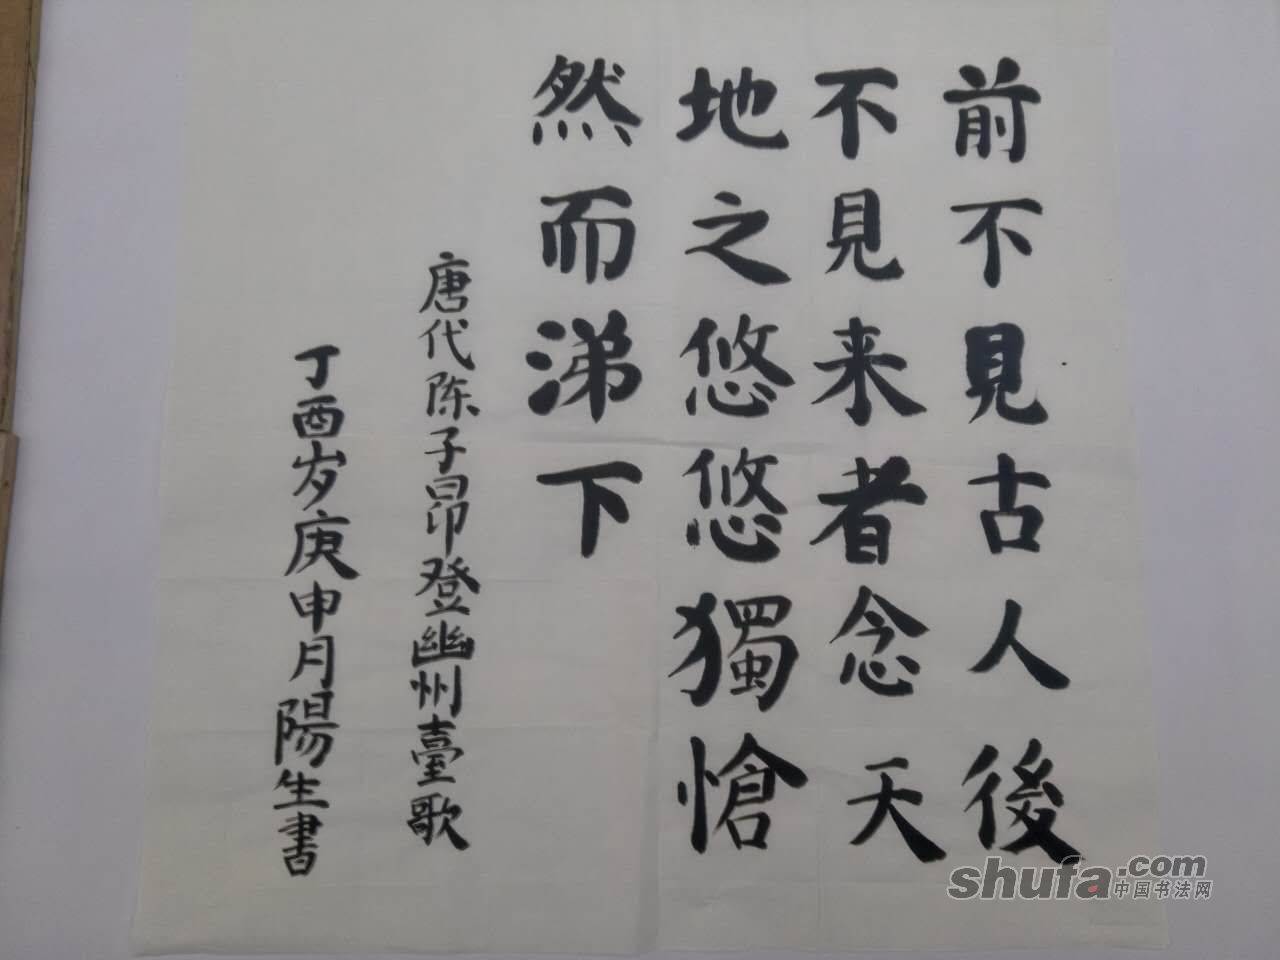 前不見古人後
不見来者念天
地之悠悠獨愴
然而涕下
唐代陈子昂登幽州臺歌
丁酉岁庚申月陽生書
shufa.com
中国书法网